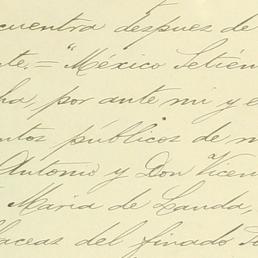 cuentra despues de
te.= "México Setiem
ha, por ante mi y e
ntos públicos de m
Antonio y Don Vicen
Maria de Landa,
laceas del finado